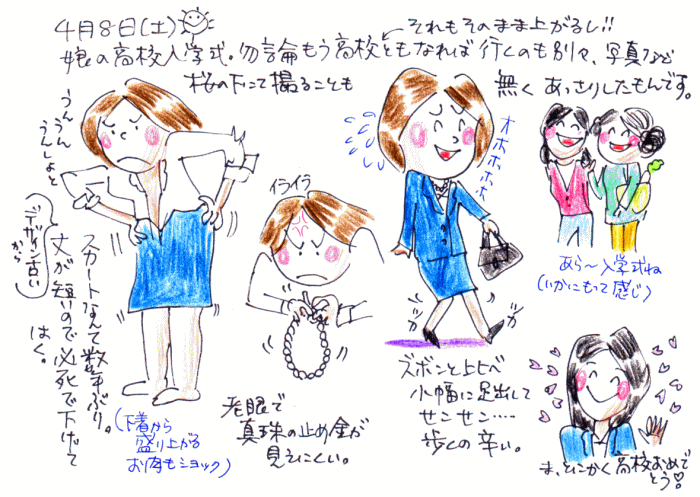 4月8日(土)
それもそのまま上がるし!!
娘の高校入学式。勿論もう高校ともなれば行くのも別々、写真など
桜の下にて撮ることも
無くあっさりしたもんです。
うんうん
うんしょっと
デザイン古い
から
スカートなんて数年ぶり。
丈が短いので必死で下げて
はく。
(下着から
盛り上がる
お肉もショック)
イライラ
老眼で
真珠の止め金が
見えにくい。
オホホホホ
ツカ
ツカ
ズボンと比べ
小幅に足出して
センセン‥‥
歩くの辛い。
あら〜入学式ね
(いかにもって感じ)
ま、とにかく高校おめで
とう♡